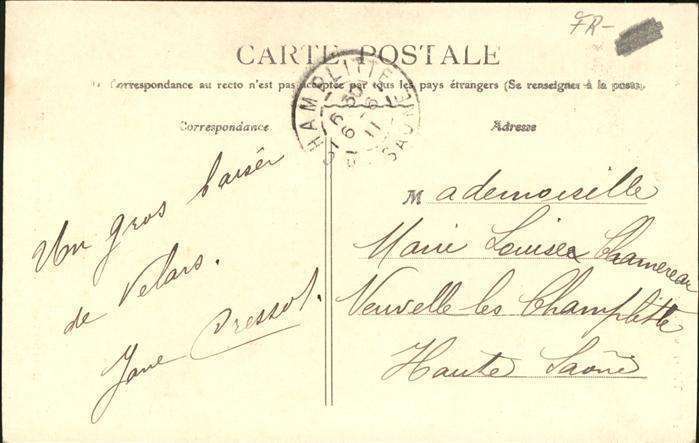 FR-
CARTE POSTALE
Correspondance au recto n'est pas acceptée par tous les pays étrangers (Se renseigner à la poste)
Correspondance
Adresse
CHAMPLITTE
6 30
6 -6
11
Un gros baiser
de Velars.
Jane Cressot.
Mademoiselle
Marie Louise Chamereau
Neuvelle-les Champlitte
Haute Saône